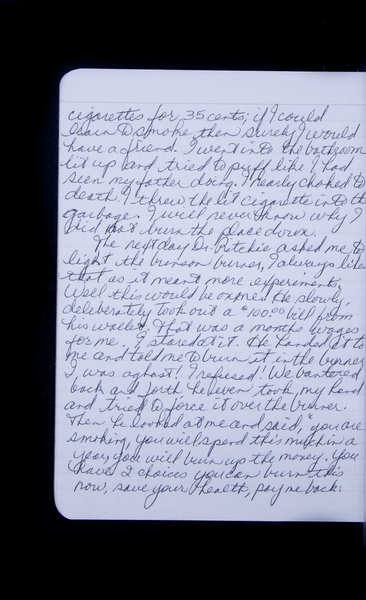 cigarettes for 35 cents; if I could
learn to smoke then surely I would
have a friend. I went into the bathroom
lit up and tried to puff like I had
seen my father doing. I nearly choked to
death. I threw the lit cigarette into the
garbage. I will never know why I
did not burn the place down.
The next day Dr. Ritchie asked me to
light the bunson burner, I always liked
that as it meant more experiments,
Well this would be one. He slowly,
deliberately took out a $100.00 bill from
his wallet. That was a months wages
for me. I stared at it. He handed it to
me and told me to burn it in the burner
I was aghast! I refused! We bantered
back and forth he even took my hand
and tried to force it over the burner.
Then he looked at me and said, "you are
smoking, you will spend this much in a
year, you will burn up the money. You
have 2 choices you can burn this
now, save your health, pay me back: